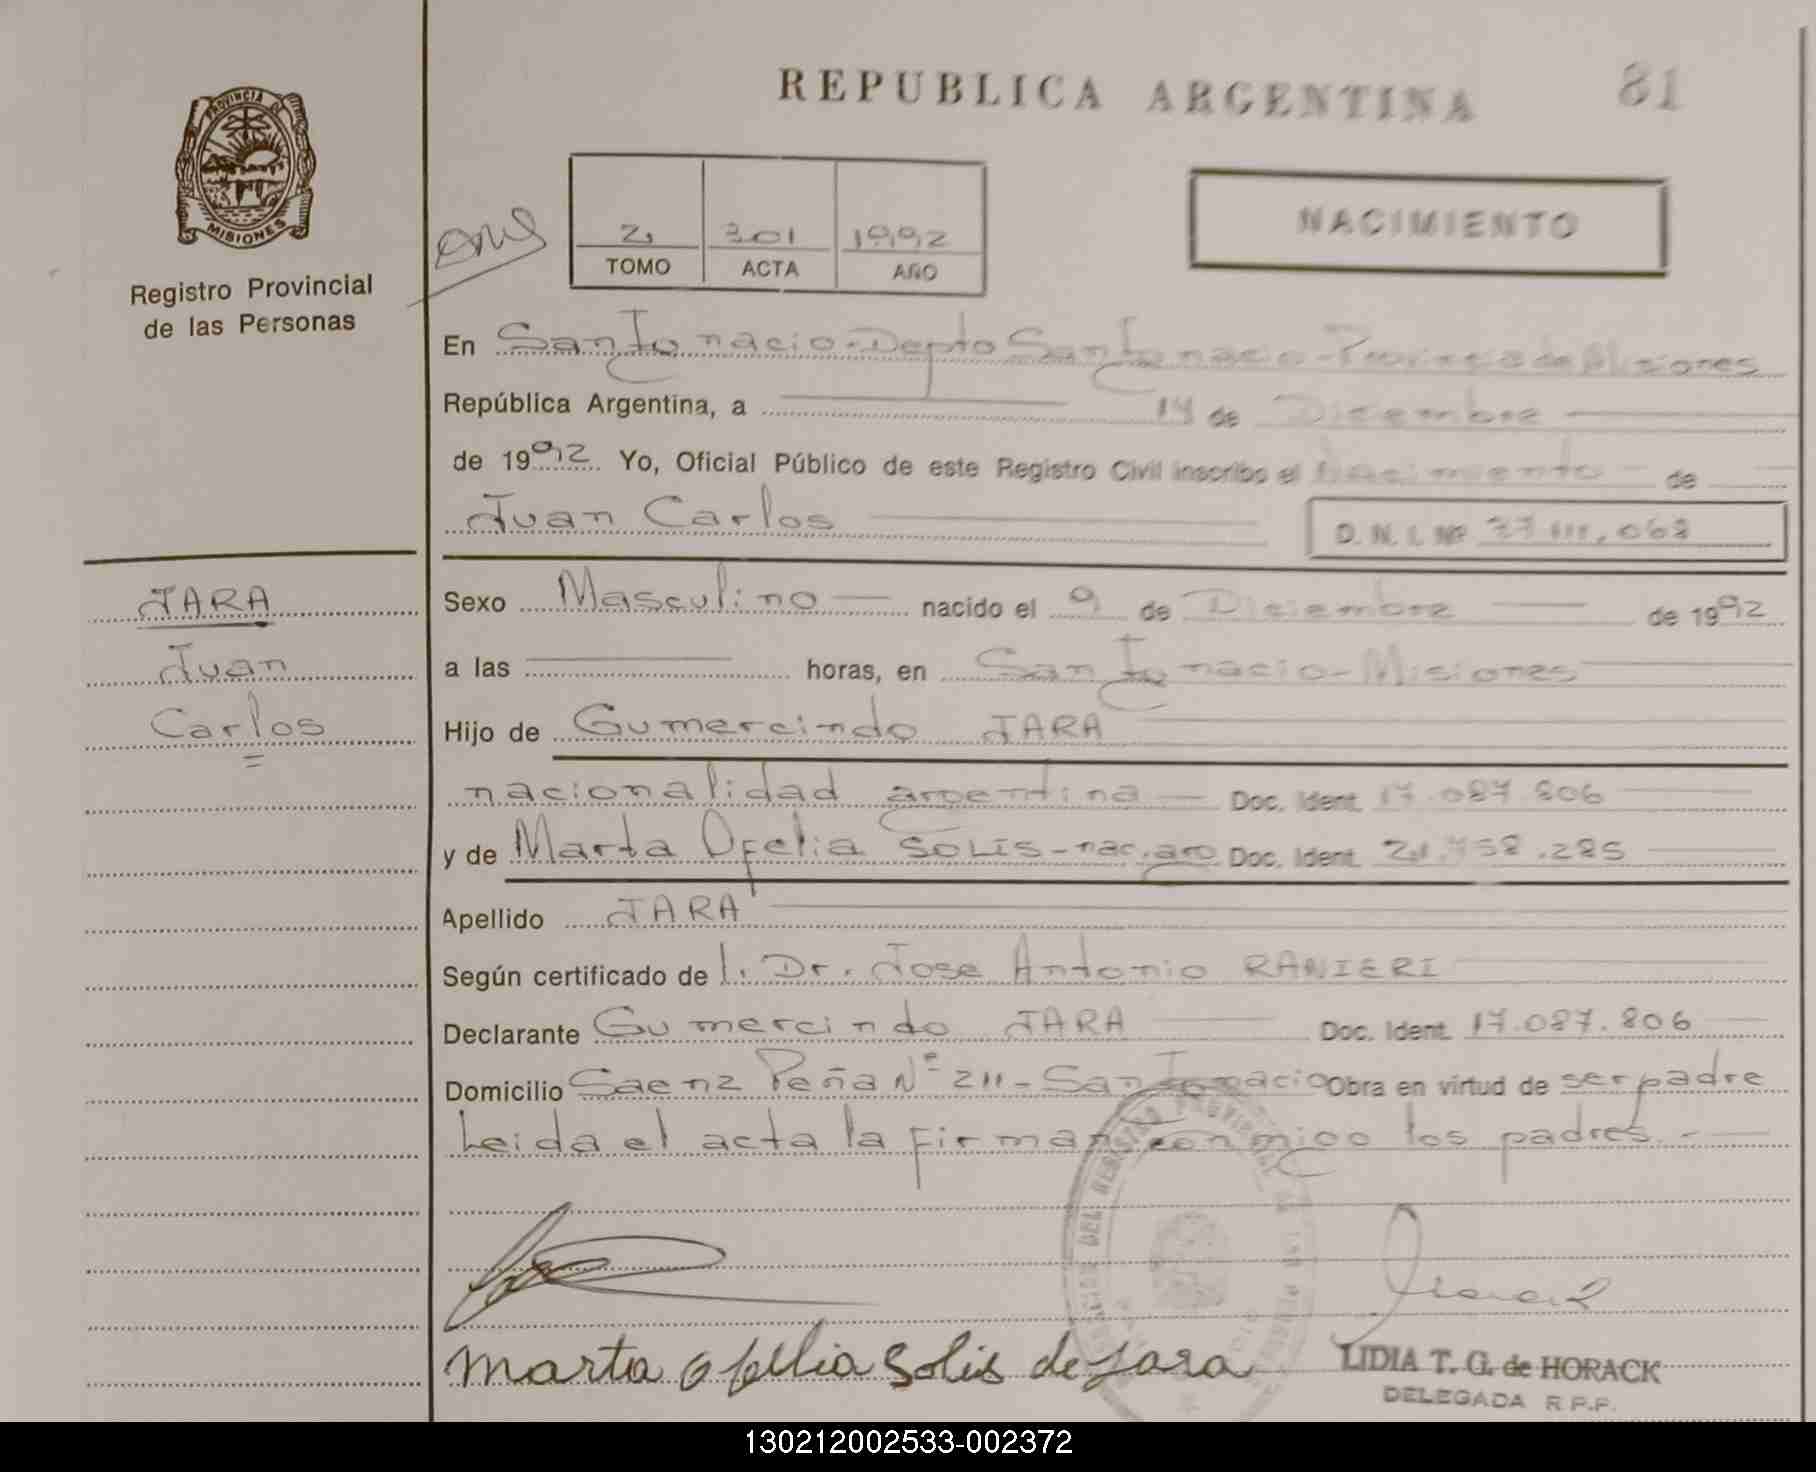 PROVINCIA DE
MISIONES
Registro Provincial
de las Personas
REPUBLICA ARGENTINA 81
2 301 1992
TOMO ACTA AÑO
NACIMIENTO
En San Ignacio-Depto San Ignacio-Provincia de Misiones
República Argentina, a 14 de Diciembre
de 1992 Yo, Oficial Público de este Registro Civil inscribo el Nacimiento de
Juan Carlos D. N. I. Nº
JARA
Juan
Carlos
Sexo Masculino nacido el 9 de Diciembre de 1992
a las horas, en San Ignacio-Misiones
Hijo de Gumercindo JARA
nacionalidad argentina Doc. Ident. 17.087.806
y de Marta Ofelia SOLIS-nac. arg Doc. Ident.
Apellido JARA
Según certificado de l. Dr. Jose Antonio RANIERI
Declarante Gumercindo JARA Doc. Ident. 17.087.806
Domicilio Saenz Peña Nº 211-San Ignacio Obra en virtud de ser padre
Leida el acta la firman conmigo los padres.-
Marta Ofelia Solis de Jara
LIDIA T. G. de HORACK
DELEGADA R.P.P.
130212002533-002372